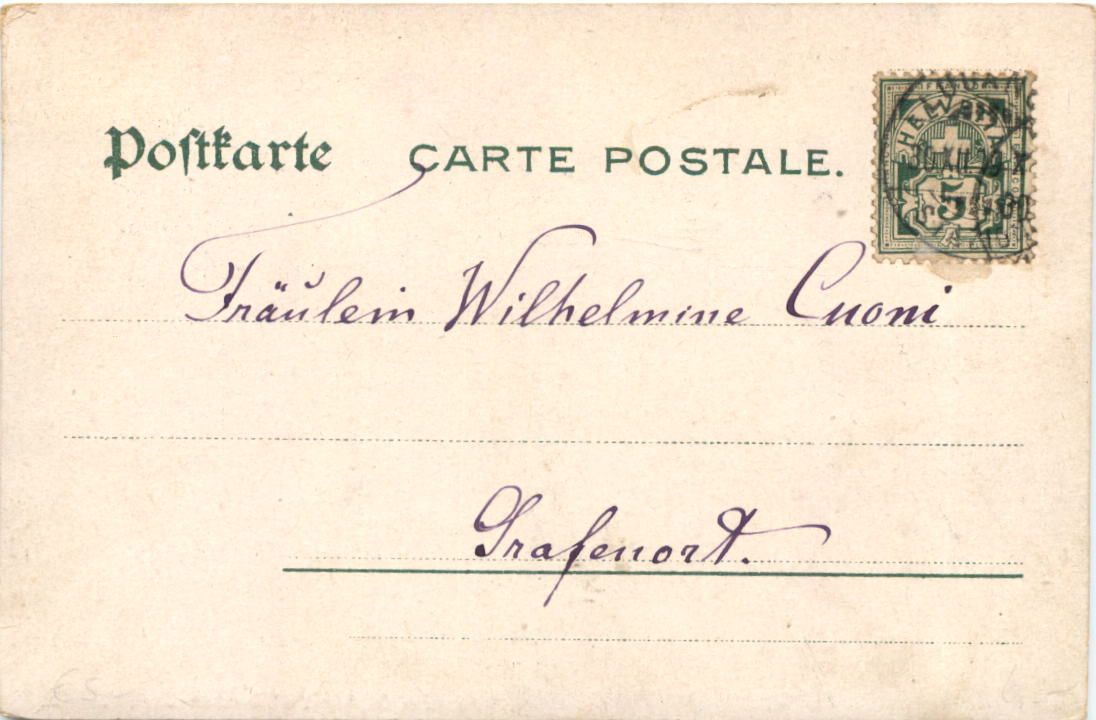 Poſtkarte CARTE POSTALE.
HELVETIA
5
Fräulein Wilhelmine Cuoni
Grafenort.